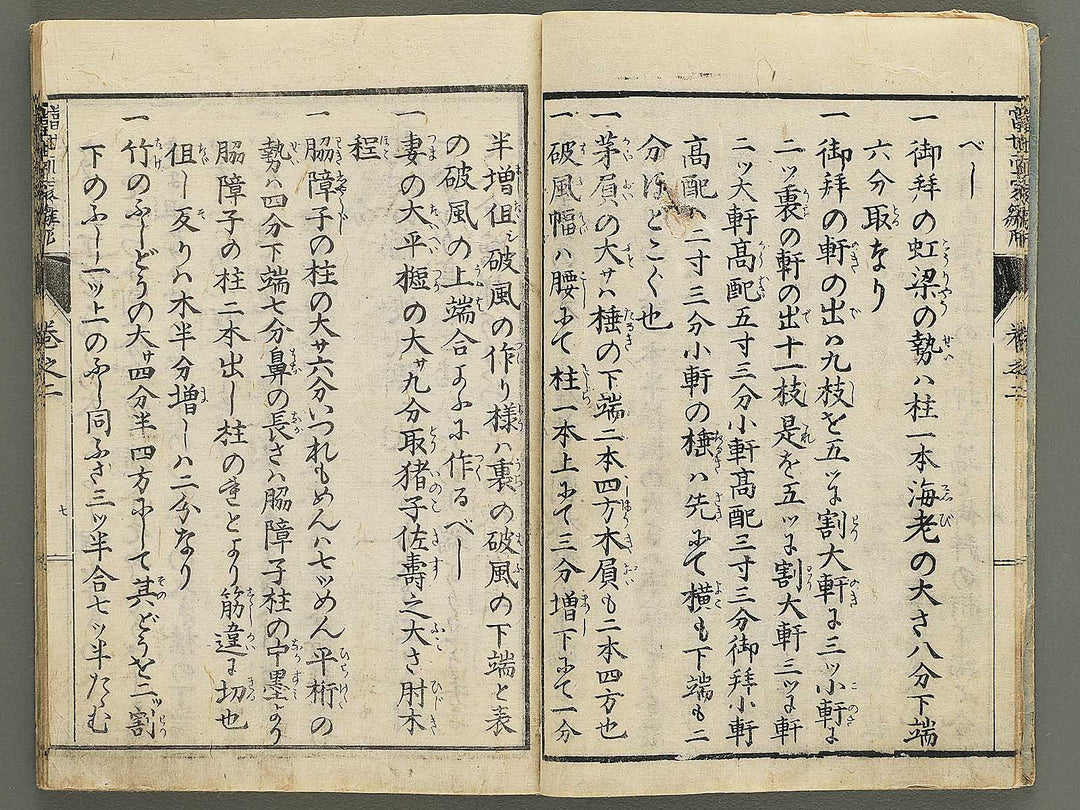 べし
一御拝の虹梁の勢ハ柱一本海老の大さ八分下端
六分取なり
一御拝の軒の出ハ九枝を五ツに割大軒に三ツ小軒に
二ツ裏の軒の出十一枝是を五ツに割大軒三ツに軒
二ツ大軒高配五寸三分小軒高配三寸三分御拝小軒
高配ハ二寸三分小軒の棰ハ先にて横も下端も二
分 とこく也
一茅負の大サハ棰の下端二本四方木負も二本四方也
一破風幅ハ腰にて柱一本上にて三分増下にて一分
半増俎ミ破風の作り様ハ裏の破風の下端と表
の破風の上端合ように作るべし
一妻の大平樞の大サ九分取猪子佐壽之大さ肘木
程
一脇障子の柱の大サ六分いつれもめんハ七ツめん平桁の
勢ハ四分下端七分鼻の長さハ脇障子柱の中墨より
脇障子の柱二本出し柱のきとより筋違に切也
俎し反りハ木半分増しハ二分なり
一竹のふしどうの大サ四分半四方にして其どうを二ツ割
下のふし一ツ上のふし同ふさ三ツ半合七ツ半たゝむ
巻之二
七